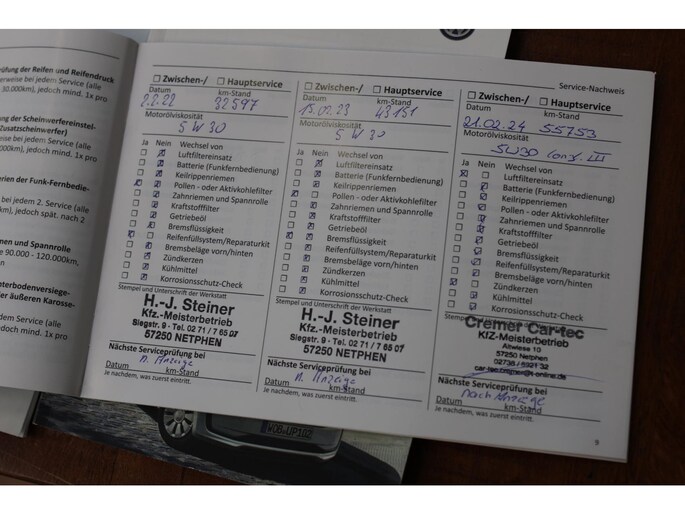 üfung der Reifen und Reifendruck
erweise bei jedem Service (alle
30.000km), jedoch mind. 1x pro
ung der Scheinwerfereinstel-
Zusatzscheinwerfer)
jedem Service (alle
km), jedoch mind. 1x pro
erien der Funk-Fernbedie-
bei jedem 2. Service (alle
m), jedoch spät. nach 2
en und Spannrolle
e 90.000 - 120.000,
nterbodenversiege-
er äußeren Karosse-
dem Service (alle
jedoch mind. 1x pro
Service-Nachweis
☐ Zwischen-/ ☐ Hauptservice
Datum km-Stand
2.2.22 32597
Motorölviskosität
5 W 30
Ja Nein Wechsel von
Luftfiltereinsatz
Batterie (Funkfernbedienung)
Keilrippenriemen
Pollen - oder Aktivkohlefilter
Zahnriemen und Spannrolle
Kraftstofffilter
Getriebeöl
Bremsflüssigkeit
Reifenfüllsystem/Reparaturkit
Bremsbeläge vorn/hinten
Zündkerzen
Kühlmittel
Korrosionsschutz-Check
Stempel und Unterschrift der Werkstatt
H.-J. Steiner
Kfz.-Meisterbetrieb
Siegstr. 9 - Tel. 02 71 / 7 65 07
57250 NETPHEN
Nächste Serviceprüfung bei
n. Anzeige
Datum km-Stand
Je nachdem, was zuerst eintritt.
☐ Zwischen-/ ☐ Hauptservice
Datum km-Stand
15.02.23 43151
Motorölviskosität
5 W 30
Ja Nein Wechsel von
Luftfiltereinsatz
Batterie (Funkfernbedienung)
Keilrippenriemen
Pollen - oder Aktivkohlefilter
Zahnriemen und Spannrolle
Kraftstofffilter
Getriebeöl
Bremsflüssigkeit
Reifenfüllsystem/Reparaturkit
Bremsbeläge vorn/hinten
Zündkerzen
Kühlmittel
Korrosionsschutz-Check
Stempel und Unterschrift der Werkstatt
H.-J. Steiner
Kfz.-Meisterbetrieb
Siegstr. 9 - Tel. 02 71 / 7 65 07
57250 NETPHEN
Nächste Serviceprüfung bei
n. Anzeige
Datum km-Stand
Je nachdem, was zuerst eintritt.
☐ Zwischen-/ ☐ Hauptservice
Datum km-Stand
21.02.24 55753
Motorölviskosität
5W30 Long. III
Ja Nein Wechsel von
Luftfiltereinsatz
Batterie (Funkfernbedienung)
Keilrippenriemen
Pollen - oder Aktivkohlefilter
Zahnriemen und Spannrolle
Kraftstofffilter
Getriebeöl
Bremsflüssigkeit
Reifenfüllsystem/Reparaturkit
Bremsbeläge vorn/hinten
Zündkerzen
Kühlmittel
Korrosionsschutz-Check
Cremer Car-tec
KfZ-Meisterbetrieb
57250 Netphen
Nächste Serviceprüfung bei
nach Anzeige
Datum km-Stand
Je nachdem, was zuerst eintritt.
9
WOB UP102